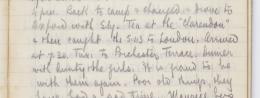 4 p.m. Back to camp & changed & drove to
Oxford with Sly. Tea at the "Clarendon"
& there caught the 5.45 to London. Arrived
at 7.20. Taxi to Porchester Terrace. Dinner
with Aunty & the girls. It is grand to be
with them again. Poor old things, they
have had a